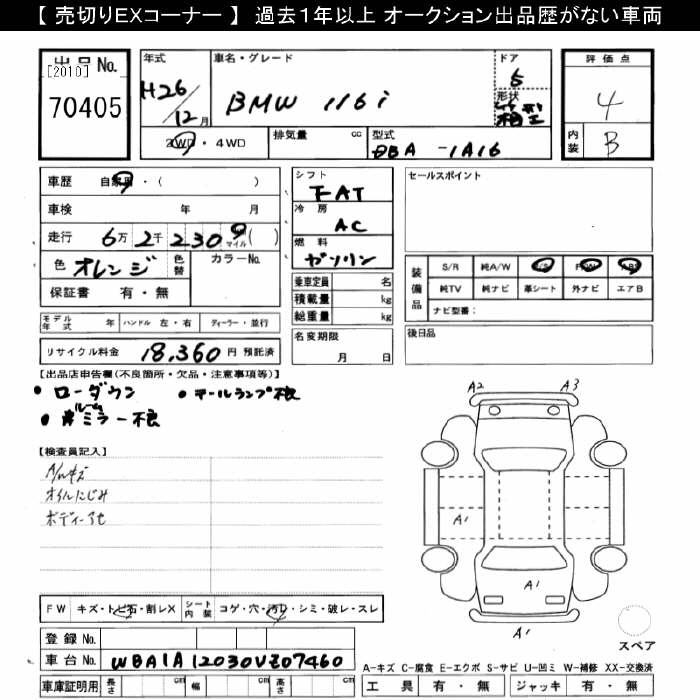 【 売切りEXコーナー 】 過去1年以上 オークション出品歴がない車両
出品No. [2010] 70405
年式 H26/12月
車名・グレード BMW 116i
ドア 5
形状
評価点 4
内装 B
2WD・4WD
排気量 cc
型式 DBA-1A16
車歴 自家用・( )
車検 年 月
走行 6万2千230 マイル( )
色 オレンジ 色替 カラーNo.
保証書 有・無
シフト FAT
冷房 AC
燃料 ガソリン
乗車定員 名
積載量 kg
総重量 kg
セールスポイント
装備品 S/R 純A/W P/S P/W ABS
純TV 純ナビ 革シート 外ナビ エアB
ナビ型番:
モデル年式 年 ハンドル 左・右 ディーラー・並行
名変期限 月 日
後日品
リサイクル料金 18,360 円 預託済
【出品店申告欄(不良箇所・欠品・注意事項等)】
・ローダウン ・テールランプ不良
ルームミラー不良
A2 A3
【検査員記入】
A/Wキズ
オイルにじみ
ボディーアセ
A1
A1
A1
FW キズ・トビ石・割レX シート内装 コゲ・穴・汚レ・シミ・破レ・スレ
登録No.
車台No. WBA1A12030VZ07460
スペア
A−キズ C−腐食 E−エクボ S−サビ U−凹ミ W−補修 XX−交換済
車庫証明用 長さ cm 幅 cm 高さ cm
工具 有・無 ジャッキ 有・無